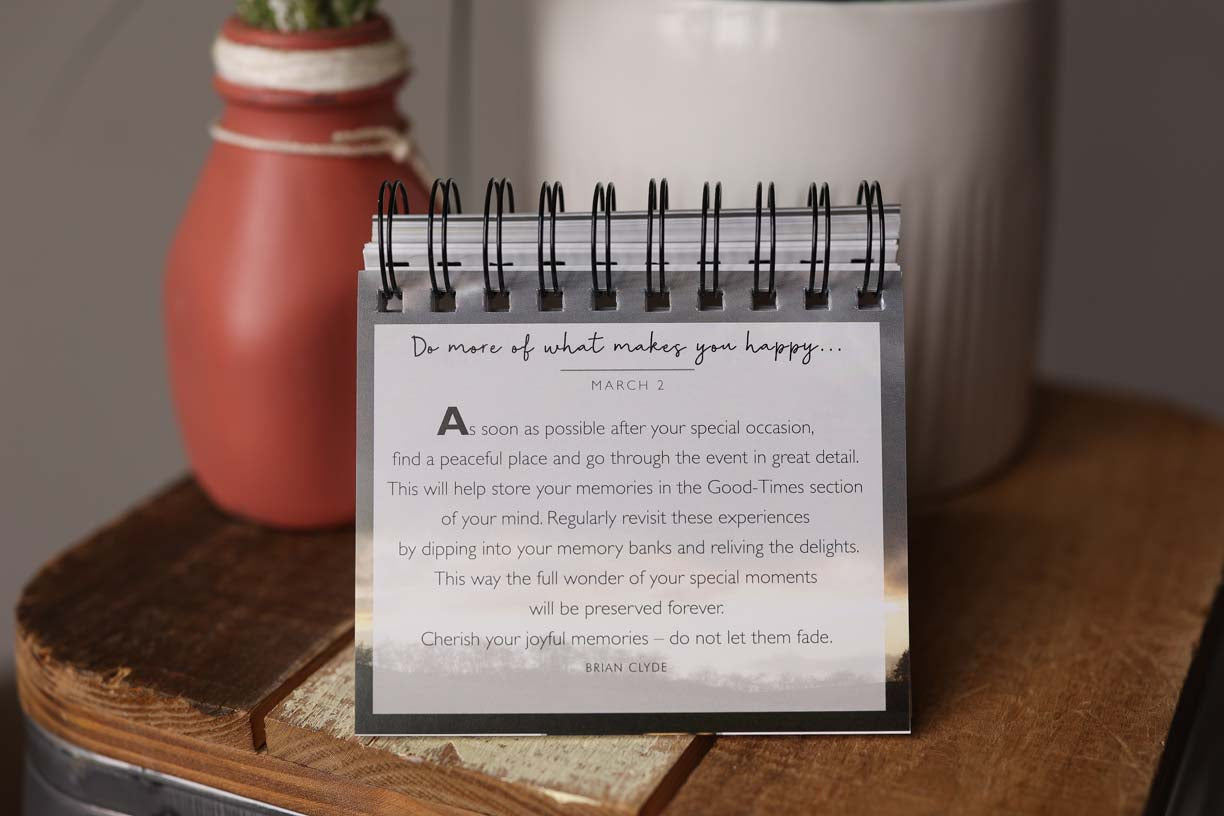 Do more of what makes you happy...
MARCH 2
As soon as possible after your special occasion,
find a peaceful place and go through the event in great detail.
This will help store your memories in the Good-Times section
of your mind. Regularly revisit these experiences
by dipping into your memory banks and reliving the delights.
This way the full wonder of your special moments
will be preserved forever.
Cherish your joyful memories – do not let them fade.
BRIAN CLYDE